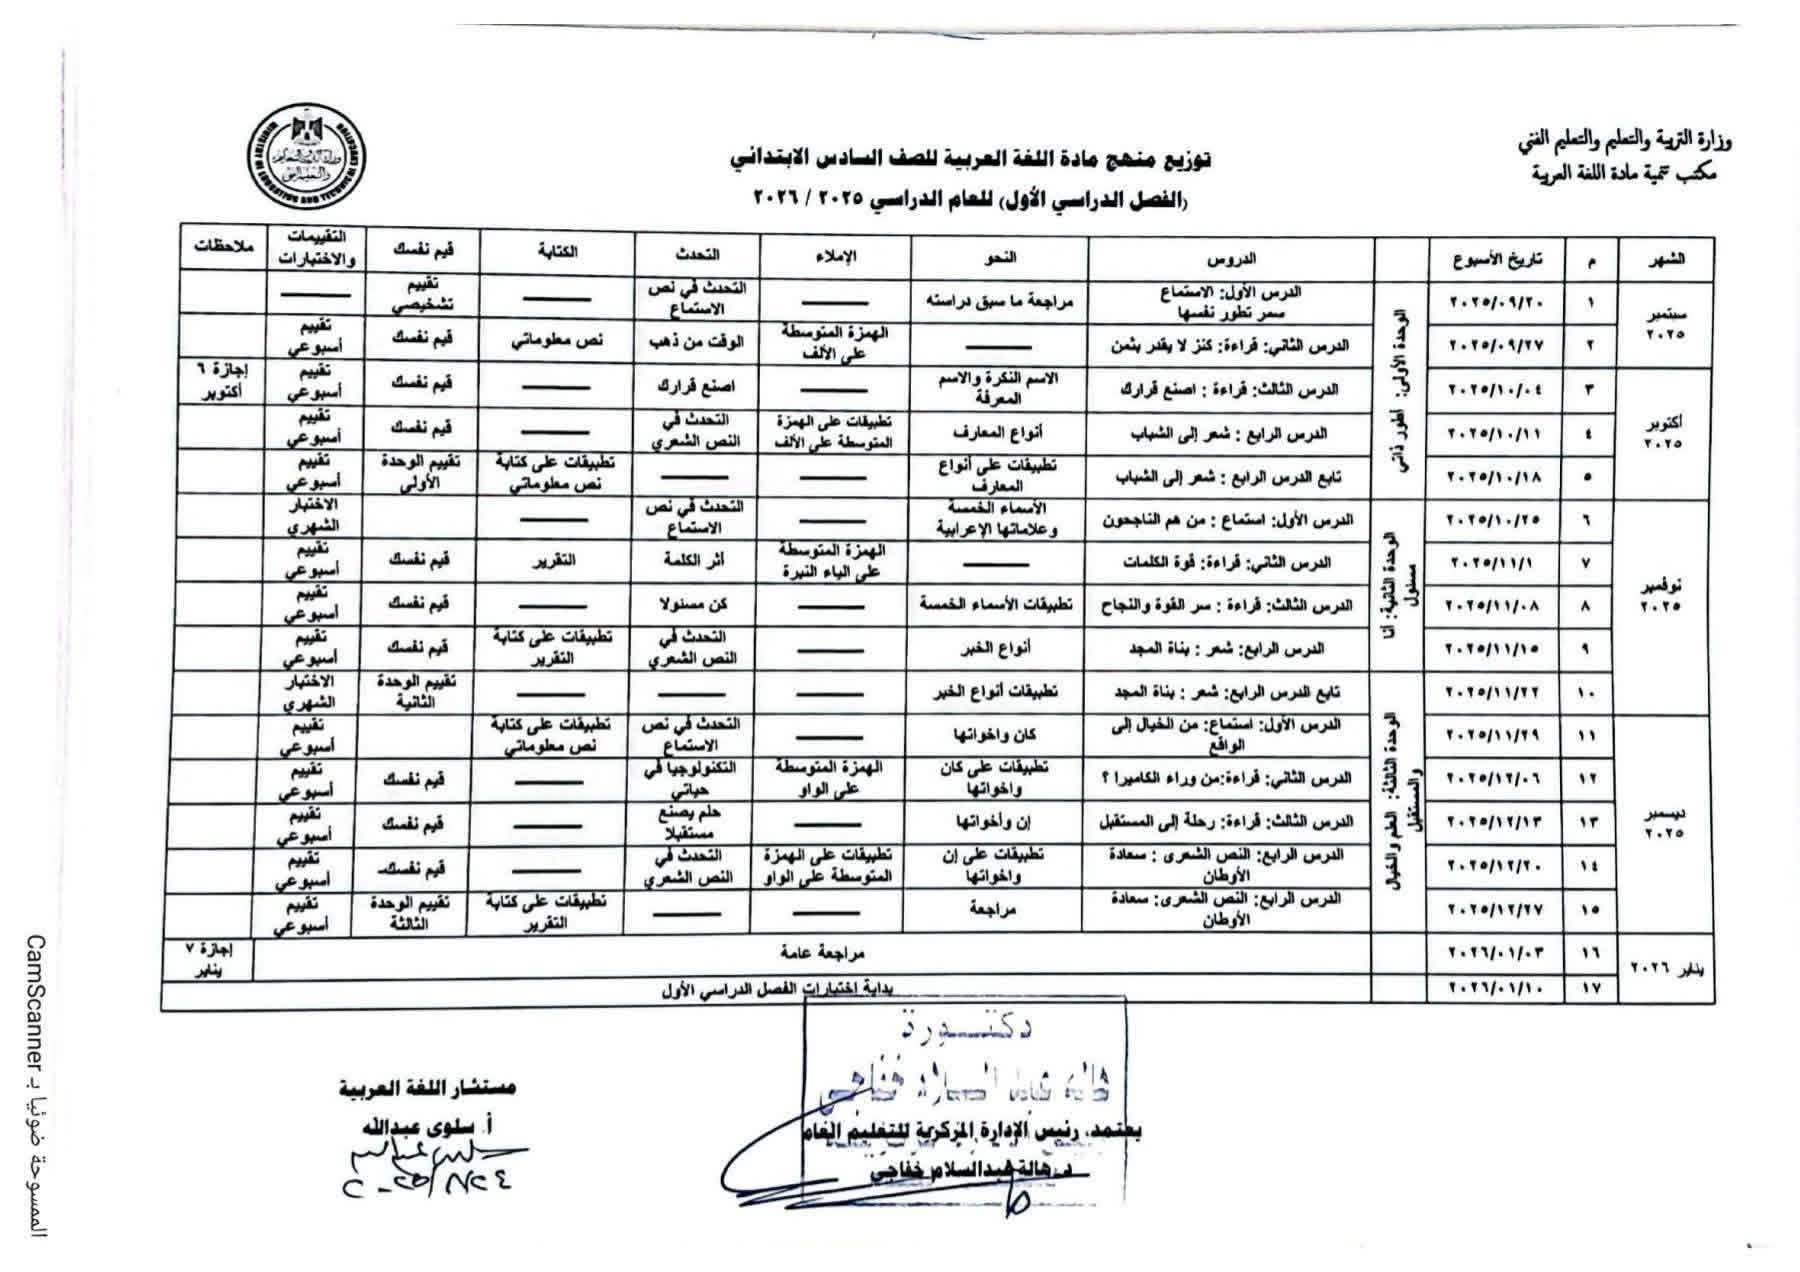 وزارة التربية والتعليم والتعليم الفني
مكتب تنمية مادة اللغة العربية
توزيع منهج مادة اللغة العربية للصف السادس الابتدائي
(الفصل الدراسي الأول) للعام الدراسي ٢٠٢٥ / ٢٠٢٦
الشهر م تاريخ الأسبوع الدروس النحو الإملاء التحدث الكتابة قيم نفسك التقييمات والاختبارات ملاحظات
سبتمبر ٢٠٢٥
الوحدة الأولى: أطور ذاتي
١ ٢٠٢٥/٠٩/٢٠ الدرس الأول: الاستماع سمر تطور نفسها مراجعة ما سبق دراسته —— التحدث في نص الاستماع —— تقييم تشخيصي ——
٢ ٢٠٢٥/٠٩/٢٧ الدرس الثاني: قراءة: كنز لا يقدر بثمن —— الهمزة المتوسطة على الألف الوقت من ذهب نص معلوماتي قيم نفسك تقييم أسبوعي
أكتوبر ٢٠٢٥
٣ ٢٠٢٥/١٠/٠٤ الدرس الثالث: قراءة : اصنع قرارك الاسم النكرة والاسم المعرفة —— اصنع قرارك —— قيم نفسك تقييم أسبوعي إجازة ٦ أكتوبر
٤ ٢٠٢٥/١٠/١١ الدرس الرابع : شعر إلى الشباب أنواع المعارف تطبيقات على الهمزة المتوسطة على الألف التحدث في النص الشعري —— قيم نفسك تقييم أسبوعي
٥ ٢٠٢٥/١٠/١٨ تابع الدرس الرابع : شعر إلى الشباب تطبيقات على أنواع المعارف —— —— تطبيقات على كتابة نص معلوماتي تقييم الوحدة الأولى تقييم أسبوعي
نوفمبر ٢٠٢٥
الوحدة الثانية: أنا مسئول
٦ ٢٠٢٥/١٠/٢٥ الدرس الأول: استماع : من هم الناجحون الأسماء الخمسة وعلاماتها الإعرابية —— التحدث في نص الاستماع —— الاختبار الشهري
٧ ٢٠٢٥/١١/١ الدرس الثاني: قراءة: قوة الكلمات —— الهمزة المتوسطة على الياء النبرة أثر الكلمة التقرير قيم نفسك تقييم أسبوعي
٨ ٢٠٢٥/١١/٠٨ الدرس الثالث: قراءة : سر القوة والنجاح تطبيقات الأسماء الخمسة —— كن مسئولا —— قيم نفسك تقييم أسبوعي
٩ ٢٠٢٥/١١/١٥ الدرس الرابع: شعر : بناة المجد أنواع الخبر —— التحدث في النص الشعري تطبيقات على كتابة التقرير قيم نفسك تقييم أسبوعي
١٠ ٢٠٢٥/١١/٢٢ تابع الدرس الرابع: شعر : بناة المجد تطبيقات أنواع الخبر —— —— —— تقييم الوحدة الثانية الاختبار الشهري
ديسمبر ٢٠٢٥
الوحدة الثالثة: العلم والخيال والمستقبل
١١ ٢٠٢٥/١١/٢٩ الدرس الأول: استماع: من الخيال إلى الواقع كان واخواتها —— التحدث في نص الاستماع تطبيقات على كتابة نص معلوماتي تقييم أسبوعي
١٢ ٢٠٢٥/١٢/٠٦ الدرس الثاني: قراءة:من وراء الكاميرا ؟ تطبيقات على كان واخواتها الهمزة المتوسطة على الواو التكنولوجيا في حياتي —— قيم نفسك تقييم أسبوعي
١٣ ٢٠٢٥/١٢/١٣ الدرس الثالث: قراءة: رحلة إلى المستقبل إن وأخواتها —— حلم يصنع مستقبلا —— قيم نفسك تقييم أسبوعي
١٤ ٢٠٢٥/١٢/٢٠ الدرس الرابع: النص الشعرى : سعادة الأوطان تطبيقات على إن واخواتها تطبيقات على الهمزة المتوسطة على الواو التحدث في النص الشعري —— قيم نفسك تقييم أسبوعي
١٥ ٢٠٢٥/١٢/٢٧ الدرس الرابع: النص الشعرى: سعادة الأوطان مراجعة —— —— تطبيقات على كتابة التقرير تقييم الوحدة الثالثة تقييم أسبوعي
يناير ٢٠٢٦
١٦ ٢٠٢٦/٠١/٠٣ مراجعة عامة إجازة ٧ يناير
١٧ ٢٠٢٦/٠١/١٠ بداية إختبارات الفصل الدراسي الأول
دكتورة
هالة عبد السلام خفاجى
يعتمد. رئيس الإدارة المركزية للتعليم العام
د. هالة عبدالسلام خفاجي
مستشار اللغة العربية
أ. سلوى عبدالله
الممسوحة ضوئيا بـ CamScanner